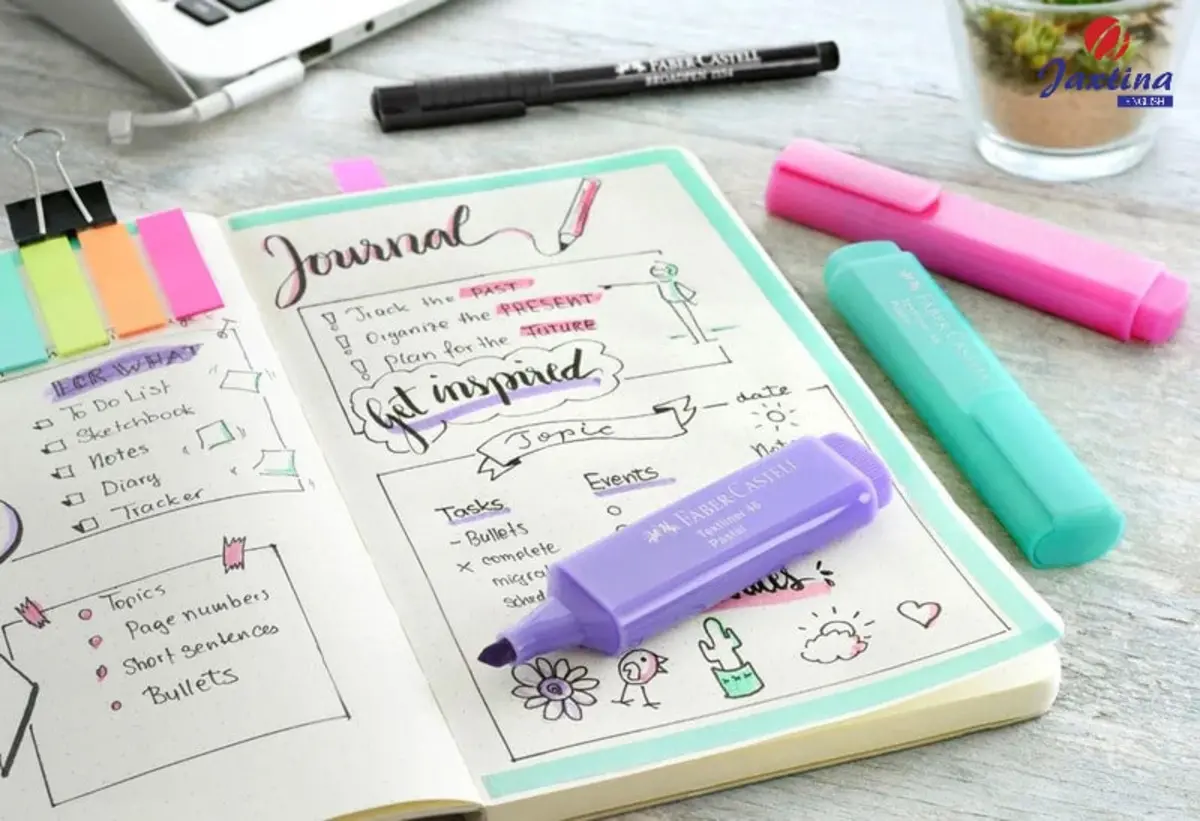 Jaxtina
ENGLISH
FABER CASTELL
BROADPEN 1554
FOR WHAT
To Do List
Sketchbook
Notes
Diary
Tracker
Topics
Page numbers
Short sentences
Bullets
Journal
Track the PAST
Organize the PRESENT
Plan for the FUTURE
Get inspired
Topic
date
Tasks
Events
- Bullets
x complete
FABER CASTELL
Textliner 46
Pastel
FABER CASTELL